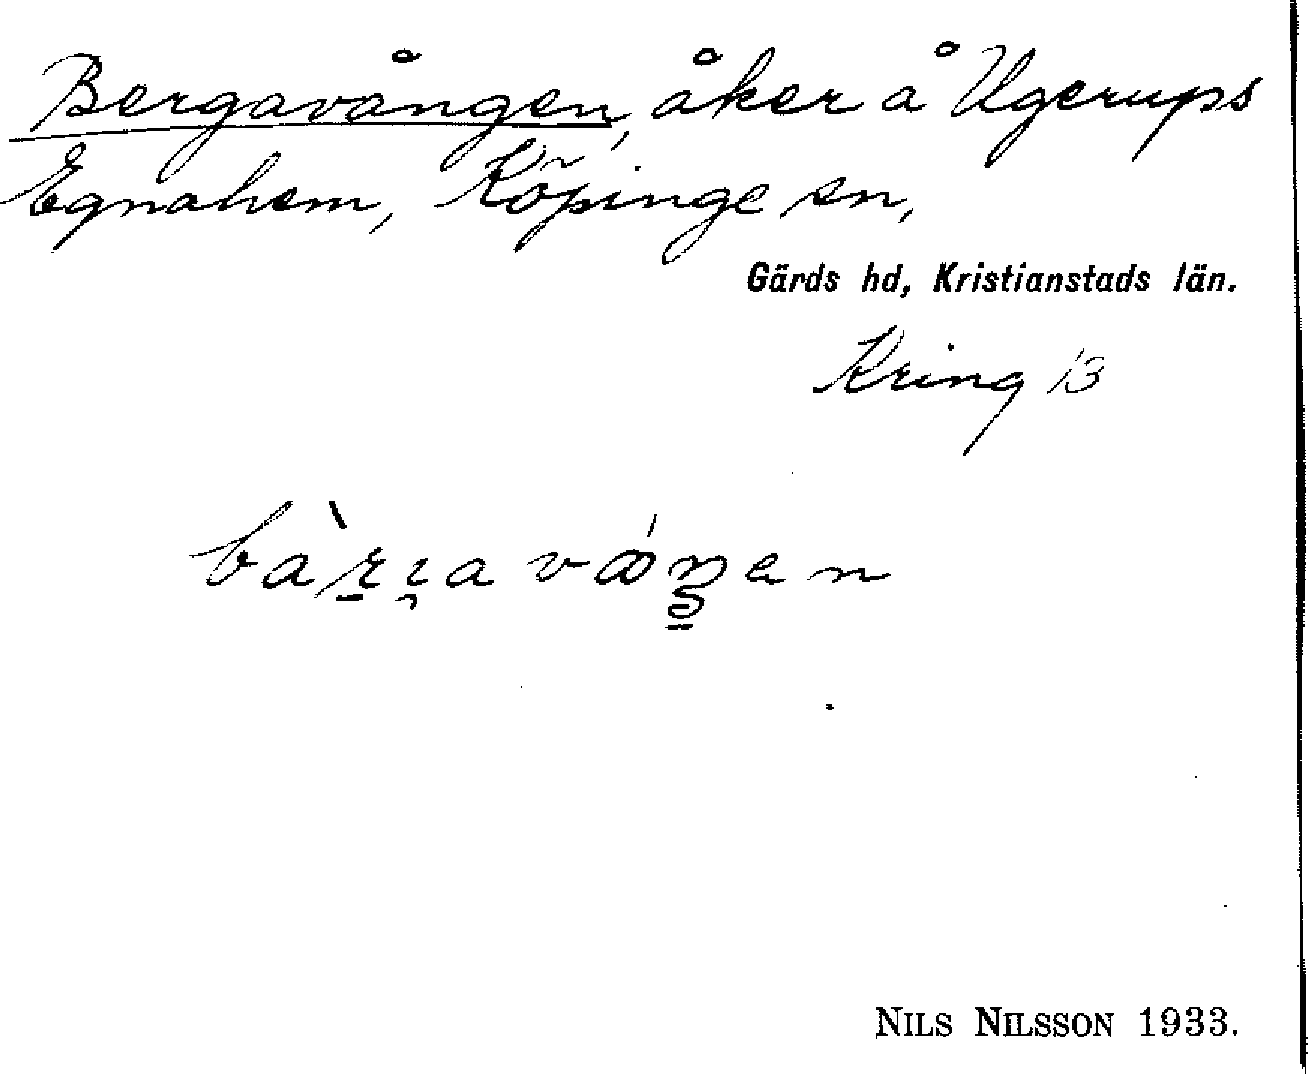 Bergavången, åker å Ugerups
Egnahem, Köpinge sn,
Gärds hd, Kristianstads län.
Kring 13
NILS NILSSON 1933.